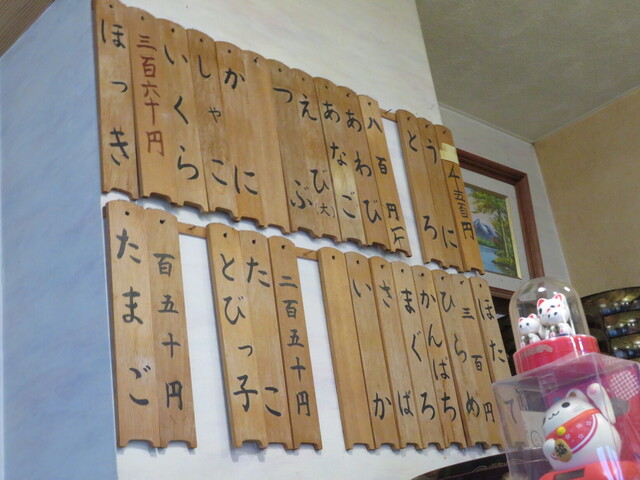 五百円
うに
とろ
八百円
あわび
あなご
えび(大)
つぶ
かに
しゃこ
いくら
三百六十円
ほっき
ほたて
三百円
ひらめ
かんぱち
まぐろ
さば
いか
二百五十円
たこ
とびっ子
百五十円
たまご